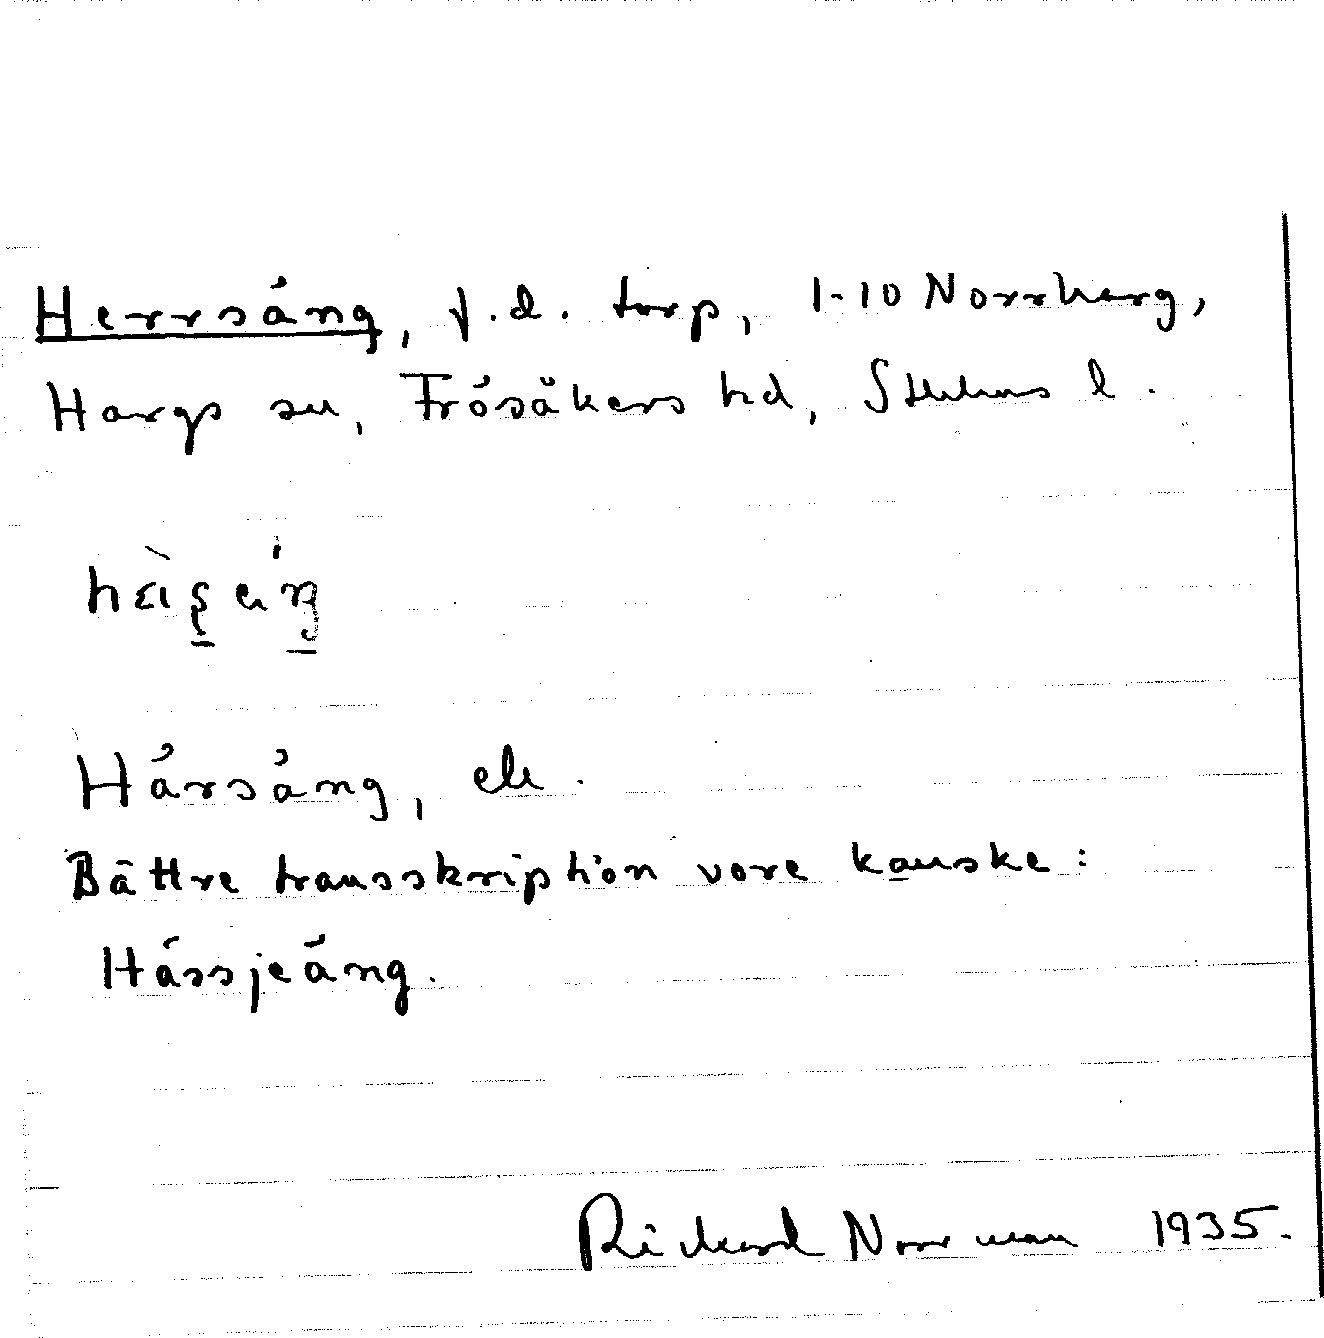 Herrsäng, f.d. torp, 1-10 Norrberg,
Hargs sn, Frösåkers hd, Sthlms l.
Härsäng, etc.
Bättre transskription vore kanske:
Hässjeäng.
Rickard Norrman 1935.